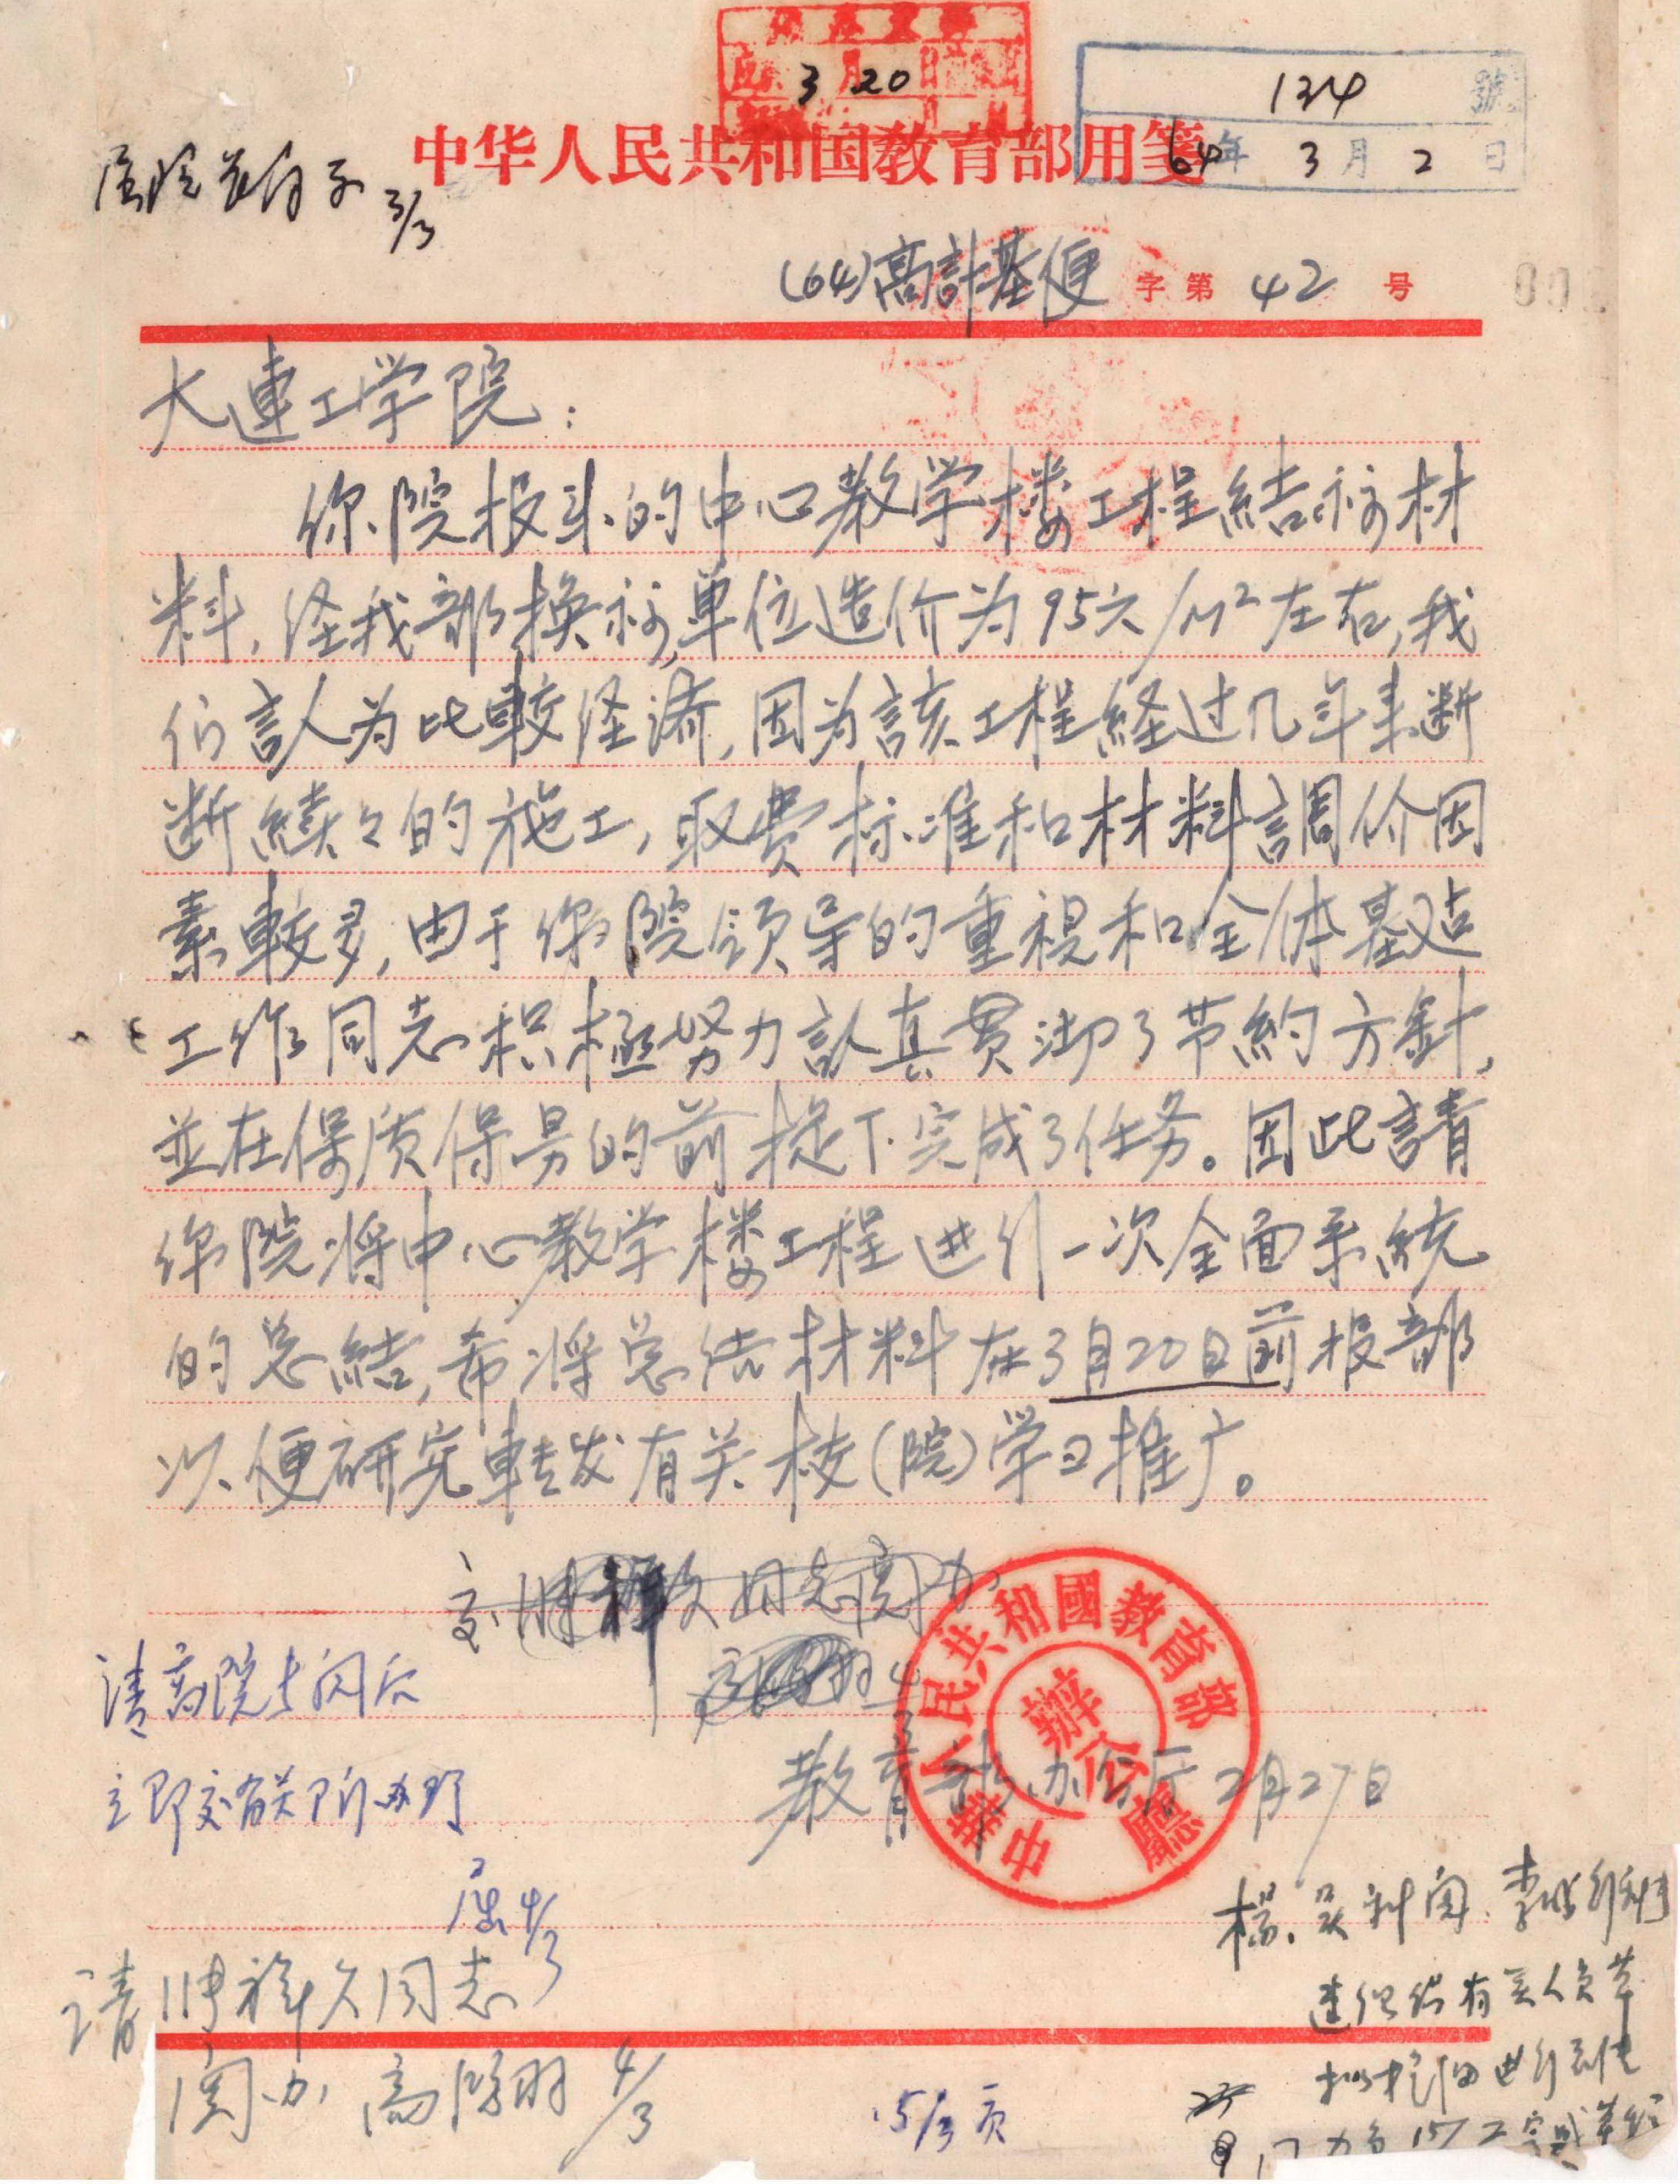 3月20日
134 號
64年3月2日
中华人民共和国教育部用箋
3/3
(64)高計基便 字第 42 号
大連工学院：
你院报来的中心教学楼工程結核材
料，经我部换核单位造价为95元/M²左右，我
们認为比較经济，因为該工程経过几年来断
断續々的施工，取费标准和材料調价因
素較多，由于你院領导的重視和全体基建
工作同志积極努力認真贯彻了节約方針，
並在保质保量的前提下完成了任务。因此請
你院将中心教学楼工程进行一次全面系統
的总結，希将总结材料在3月20日前报部
以便研究轉发有关校(院)学习推广。
教育部办公厅 2月27日
中華人民共和國教育部
辦公廳
请高院长阅后
立即交有关部门办理
屈 4/3
请帅祥久同志
阅办 4/3
15/3